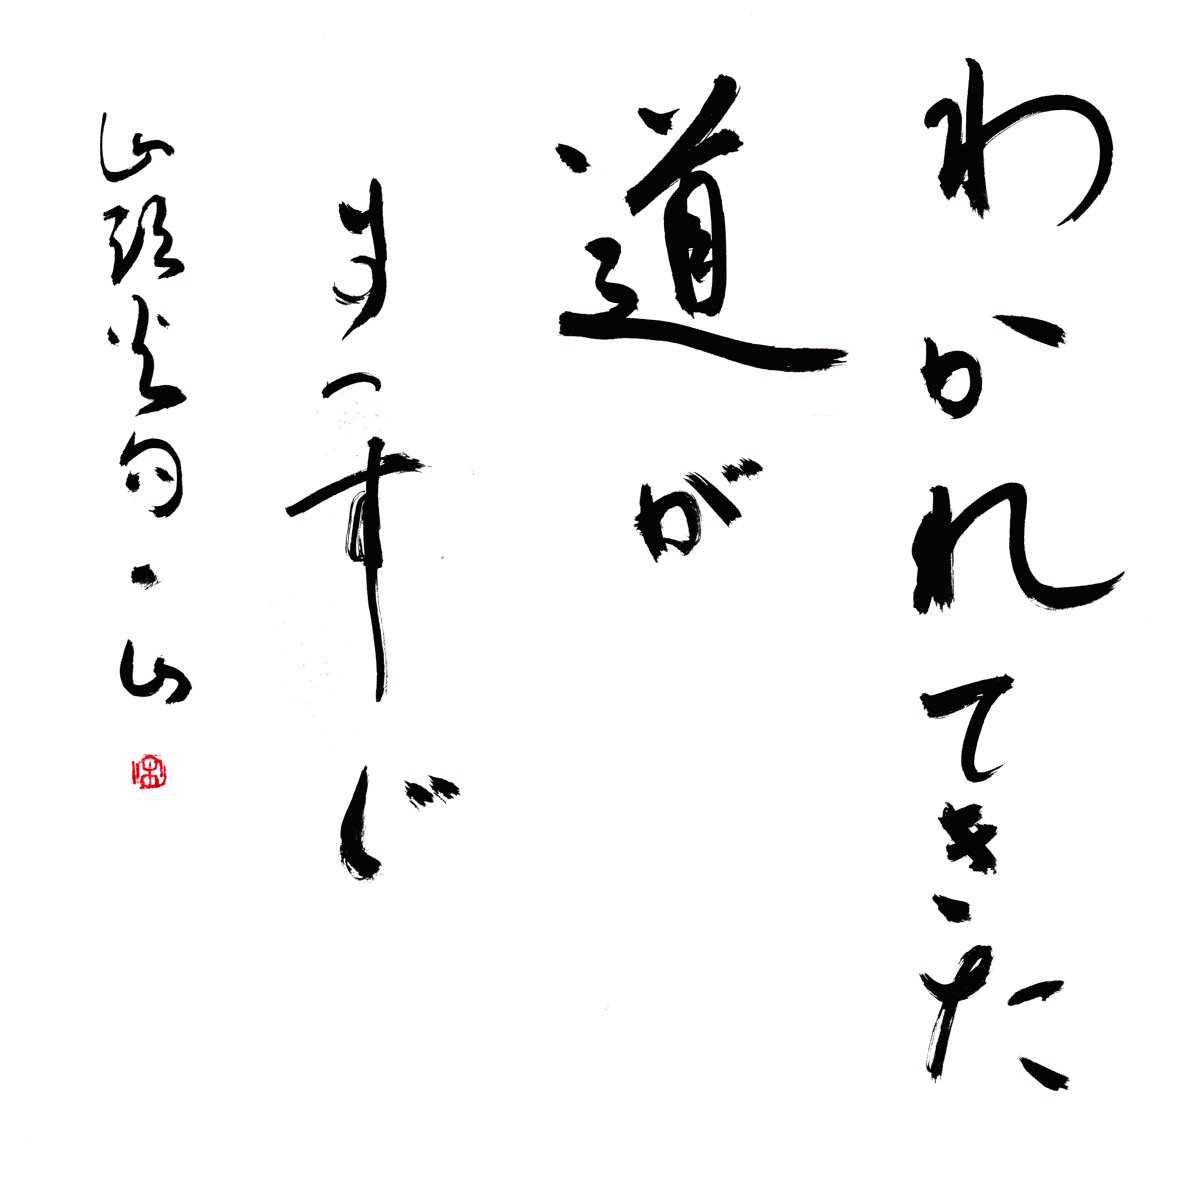 わかれてきた
道が
まっすぐ
山頭火句・山